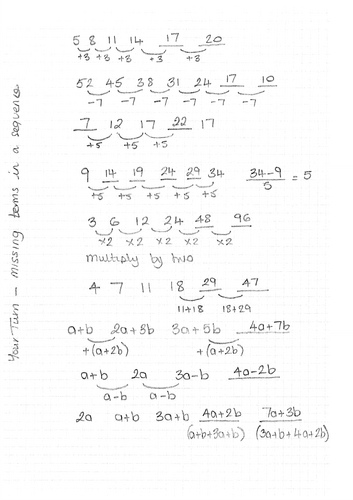 Your Turn - missing terms in a sequence
5 8 11 14 17 20
+3 +3 +3 +3 +3
52 45 38 31 24 17 10
-7 -7 -7 -7 -7 -7
7 12 17 22 17
+5 +5 +5
9 14 19 24 29 34 34-9/5 = 5
+5 +5 +5 +5 +5
3 6 12 24 48 96
×2 ×2 ×2 ×2 ×2
multiply by two
4 7 11 18 29 47
11+18 18+29
a+b 2a+3b 3a+5b 4a+7b
+(a+2b) +(a+2b)
a+b 2a 3a-b 4a-2b
a-b a-b
2a a+b 3a+b 4a+2b 7a+3b
(a+b+3a+b) (3a+b+4a+2b)